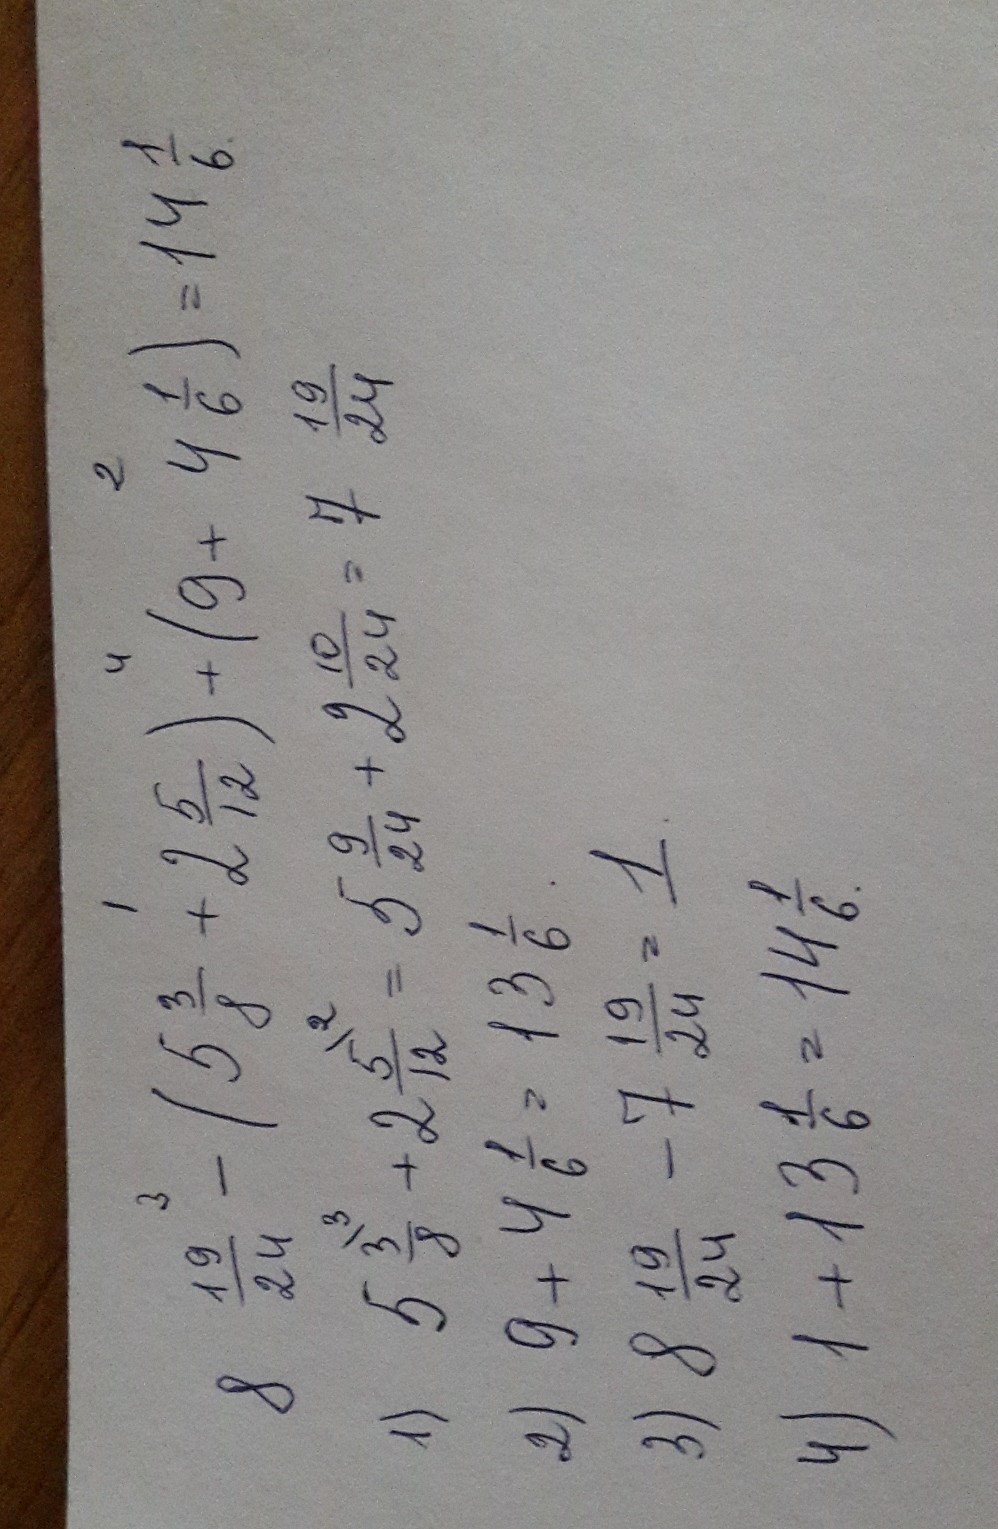 3 1 4 2
8 19/24 - (5 3/8 + 2 5/12) + (9 + 4 1/6) = 14 1/6.
1) 5 3\3/8 + 2 5\2/12 = 5 9/24 + 2 10/24 = 7 19/24
2) 9 + 4 1/6 = 13 1/6.
3) 8 19/24 - 7 19/24 = 1.
4) 1 + 13 1/6 = 14 1/6.